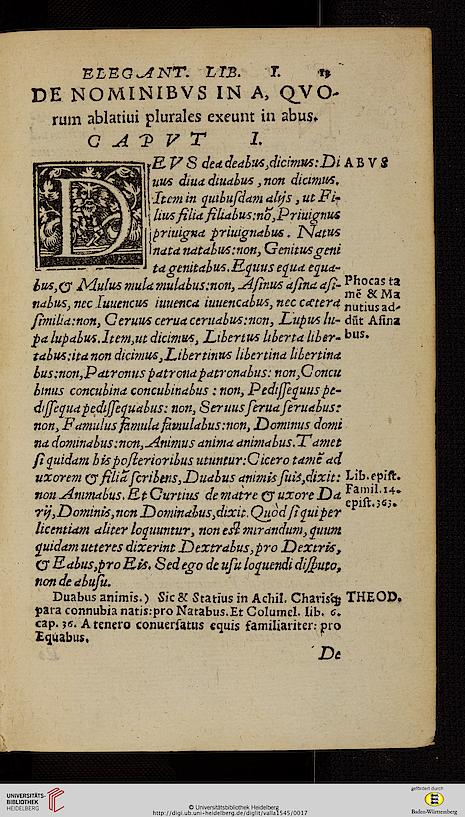 ELEGANT. LIB. I. 13
DE NOMINIBVS IN A, QVO-
rum ablatiui plurales exeunt in abus.
CAPVT I.
DEVS dea deabus, dicimus: Di
uus diua diuabus, non dicimus.
Item in quibusdam alijs, ut Fi-
lius filia filiabus: nõ, Priuignus
priuigna priuignabus. Natus
nata natabus: non, Genitus geni
ta genitabus. Equus equa equa-
bus, & Mulus mula mulabus: non, Asinus asina asi-
nabus, nec Iuuencus iuuenca iuuencabus, nec cætera
similia: non, Ceruus cerua ceruabus: non, Lupus lu-
pa lupabus. Item, ut dicimus, Libertus liberta liber-
tabus: ita non dicimus, Libertinus libertina libertina
bus: non, Patronus patrona patronabus: non, Concu
binus concubina concubinabus: non, Pedissequus pe-
dissequa pedissequabus: non, Seruus serua seruabus:
non, Famulus famula famulabus: non, Dominus domi
na dominabus: non, Animus anima animabus. Tamet
si quidam his posterioribus utuntur: Cicero tamē ad
uxorem & filiā scribens, Duabus animis suis, dixit:
non Animabus. Et Curtius de matre & uxore Da
rij, Dominis, non Dominabus, dixit. Quòd si qui per
licentiam aliter loquuntur, non est mirandum, quum
quidam ueteres dixerint Dextrabus, pro Dextris,
& Eabus, pro Eis. Sed ego de usu loquendi disputo,
non de abusu.
ABVS
Phocas ta
mē & Ma
nutius ad-
dūt Asina
bus.
Lib. epist.
Famil. 14.
epist. 363.
Duabus animis.) Sic & Statius in Achil. Charisq;
para connubia natis: pro Natabus. Et Columel. lib. 6.
cap. 36. A tenero conuersatus equis familiariter: pro
Equabus.
THEOD.
De
UNIVERSITÄTS-
BIBLIOTHEK
HEIDELBERG
© Universitätsbibliothek Heidelberg
http://digi.ub.uni-heidelberg.de/diglit/valla1545/0017
gefördert durch
Baden-Württemberg